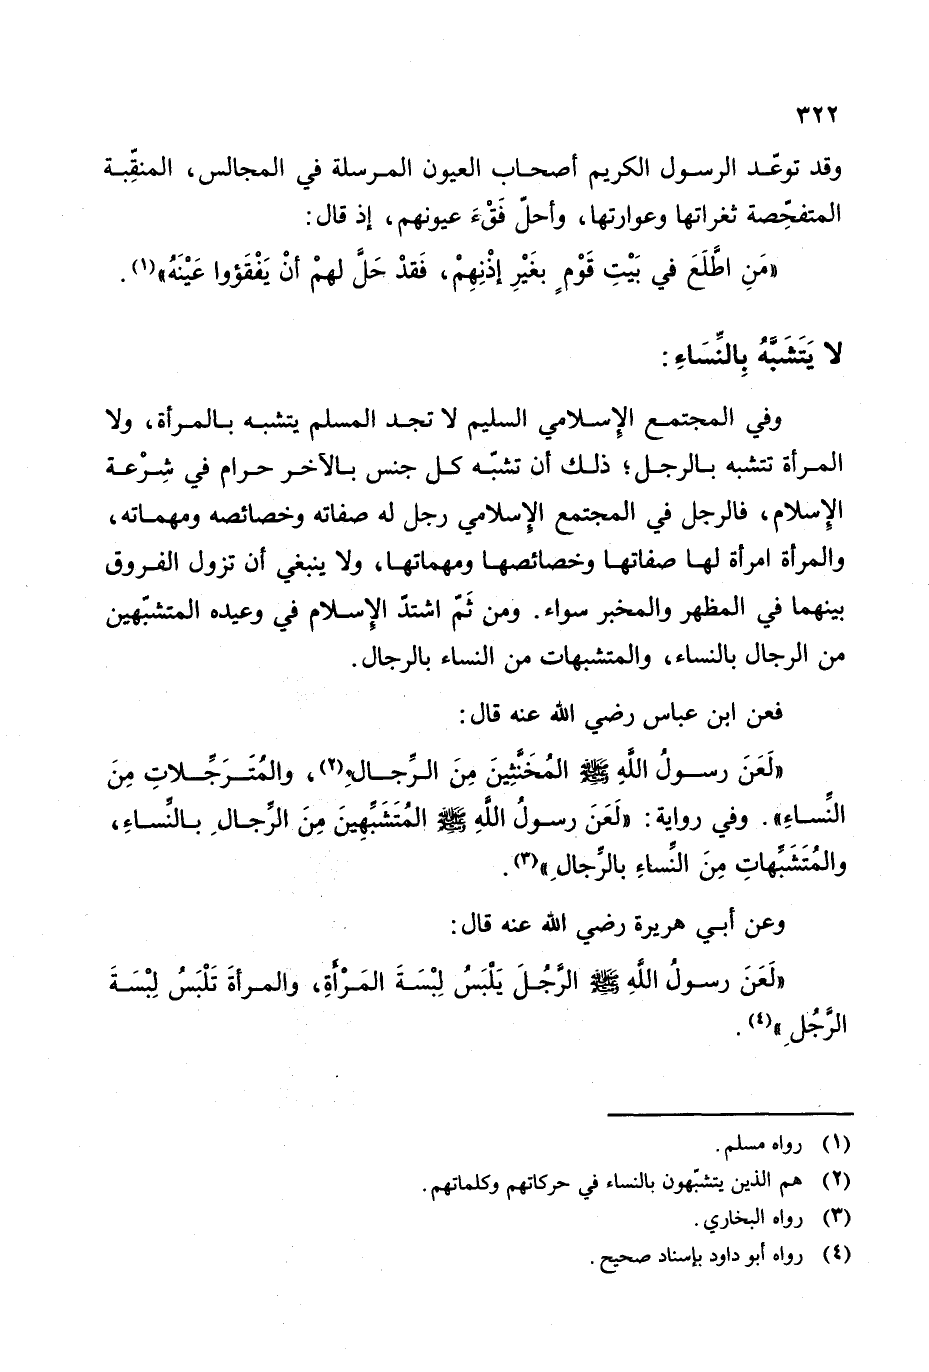 ٣٢٢
وقد توعّد الرسول الكريم أصحاب العيون المرسلة في المجالس، المنقِّبة
المتفحِّصة ثغراتها وعوارتها، وأحلّ فَقْءَ عيونهم، إذ قال:
«مَنِ اطَّلَعَ في بَيْتِ قَوْمٍ بغَيْرِ إذْنِهِمْ، فَقدْ حَلَّ لهمْ أنْ يَفْقَؤوا عَيْنَهُ»(١).
لا يَتَشَبَّهُ بِالنِّسَاءِ:
وفي المجتمع الإسلامي السليم لا تجد المسلم يتشبه بالمرأة، ولا
المرأة تتشبه بالرجل؛ ذلك أن تشبّه كل جنس بالآخر حرام في شِرْعة
الإسلام، فالرجل في المجتمع الإسلامي رجل له صفاته وخصائصه ومهماته،
والمرأة امرأة لها صفاتها وخصائصها ومهماتها، ولا ينبغي أن تزول الفروق
بينهما في المظهر والمخبر سواء. ومن ثَمّ اشتدّ الإسلام في وعيده المتشبّهين
من الرجال بالنساء، والمتشبهات من النساء بالرجال.
فعن ابن عباس رضي الله عنه قال:
«لَعَنَ رسولُ اللَّهِ ﷺ المُخَنَّثِينَ مِنَ الرِّجالِ»(٢)، والمُتَرَجِّلاتِ مِنَ
النِّساءِ». وفي رواية: «لَعَنَ رسولُ اللَّهِ ﷺ المُتَشَبِّهِينَ مِنَ الرِّجالِ بالنِّساءِ،
والمُتَشَبِّهاتِ مِنَ النِّساءِ بالرِّجالِ»(٣).
وعن أبي هريرة رضي الله عنه قال:
«لَعَنَ رسولُ اللَّهِ ﷺ الرَّجُلَ يَلْبَسُ لِبْسَةَ المَرْأَةِ، والمرأةَ تَلْبَسُ لِبْسَةَ
الرَّجُلِ»(٤).
(١) رواه مسلم.
(٢) هم الذين يتشبّهون بالنساء في حركاتهم وكلماتهم.
(٣) رواه البخاري.
(٤) رواه أبو داود بإسناد صحيح.